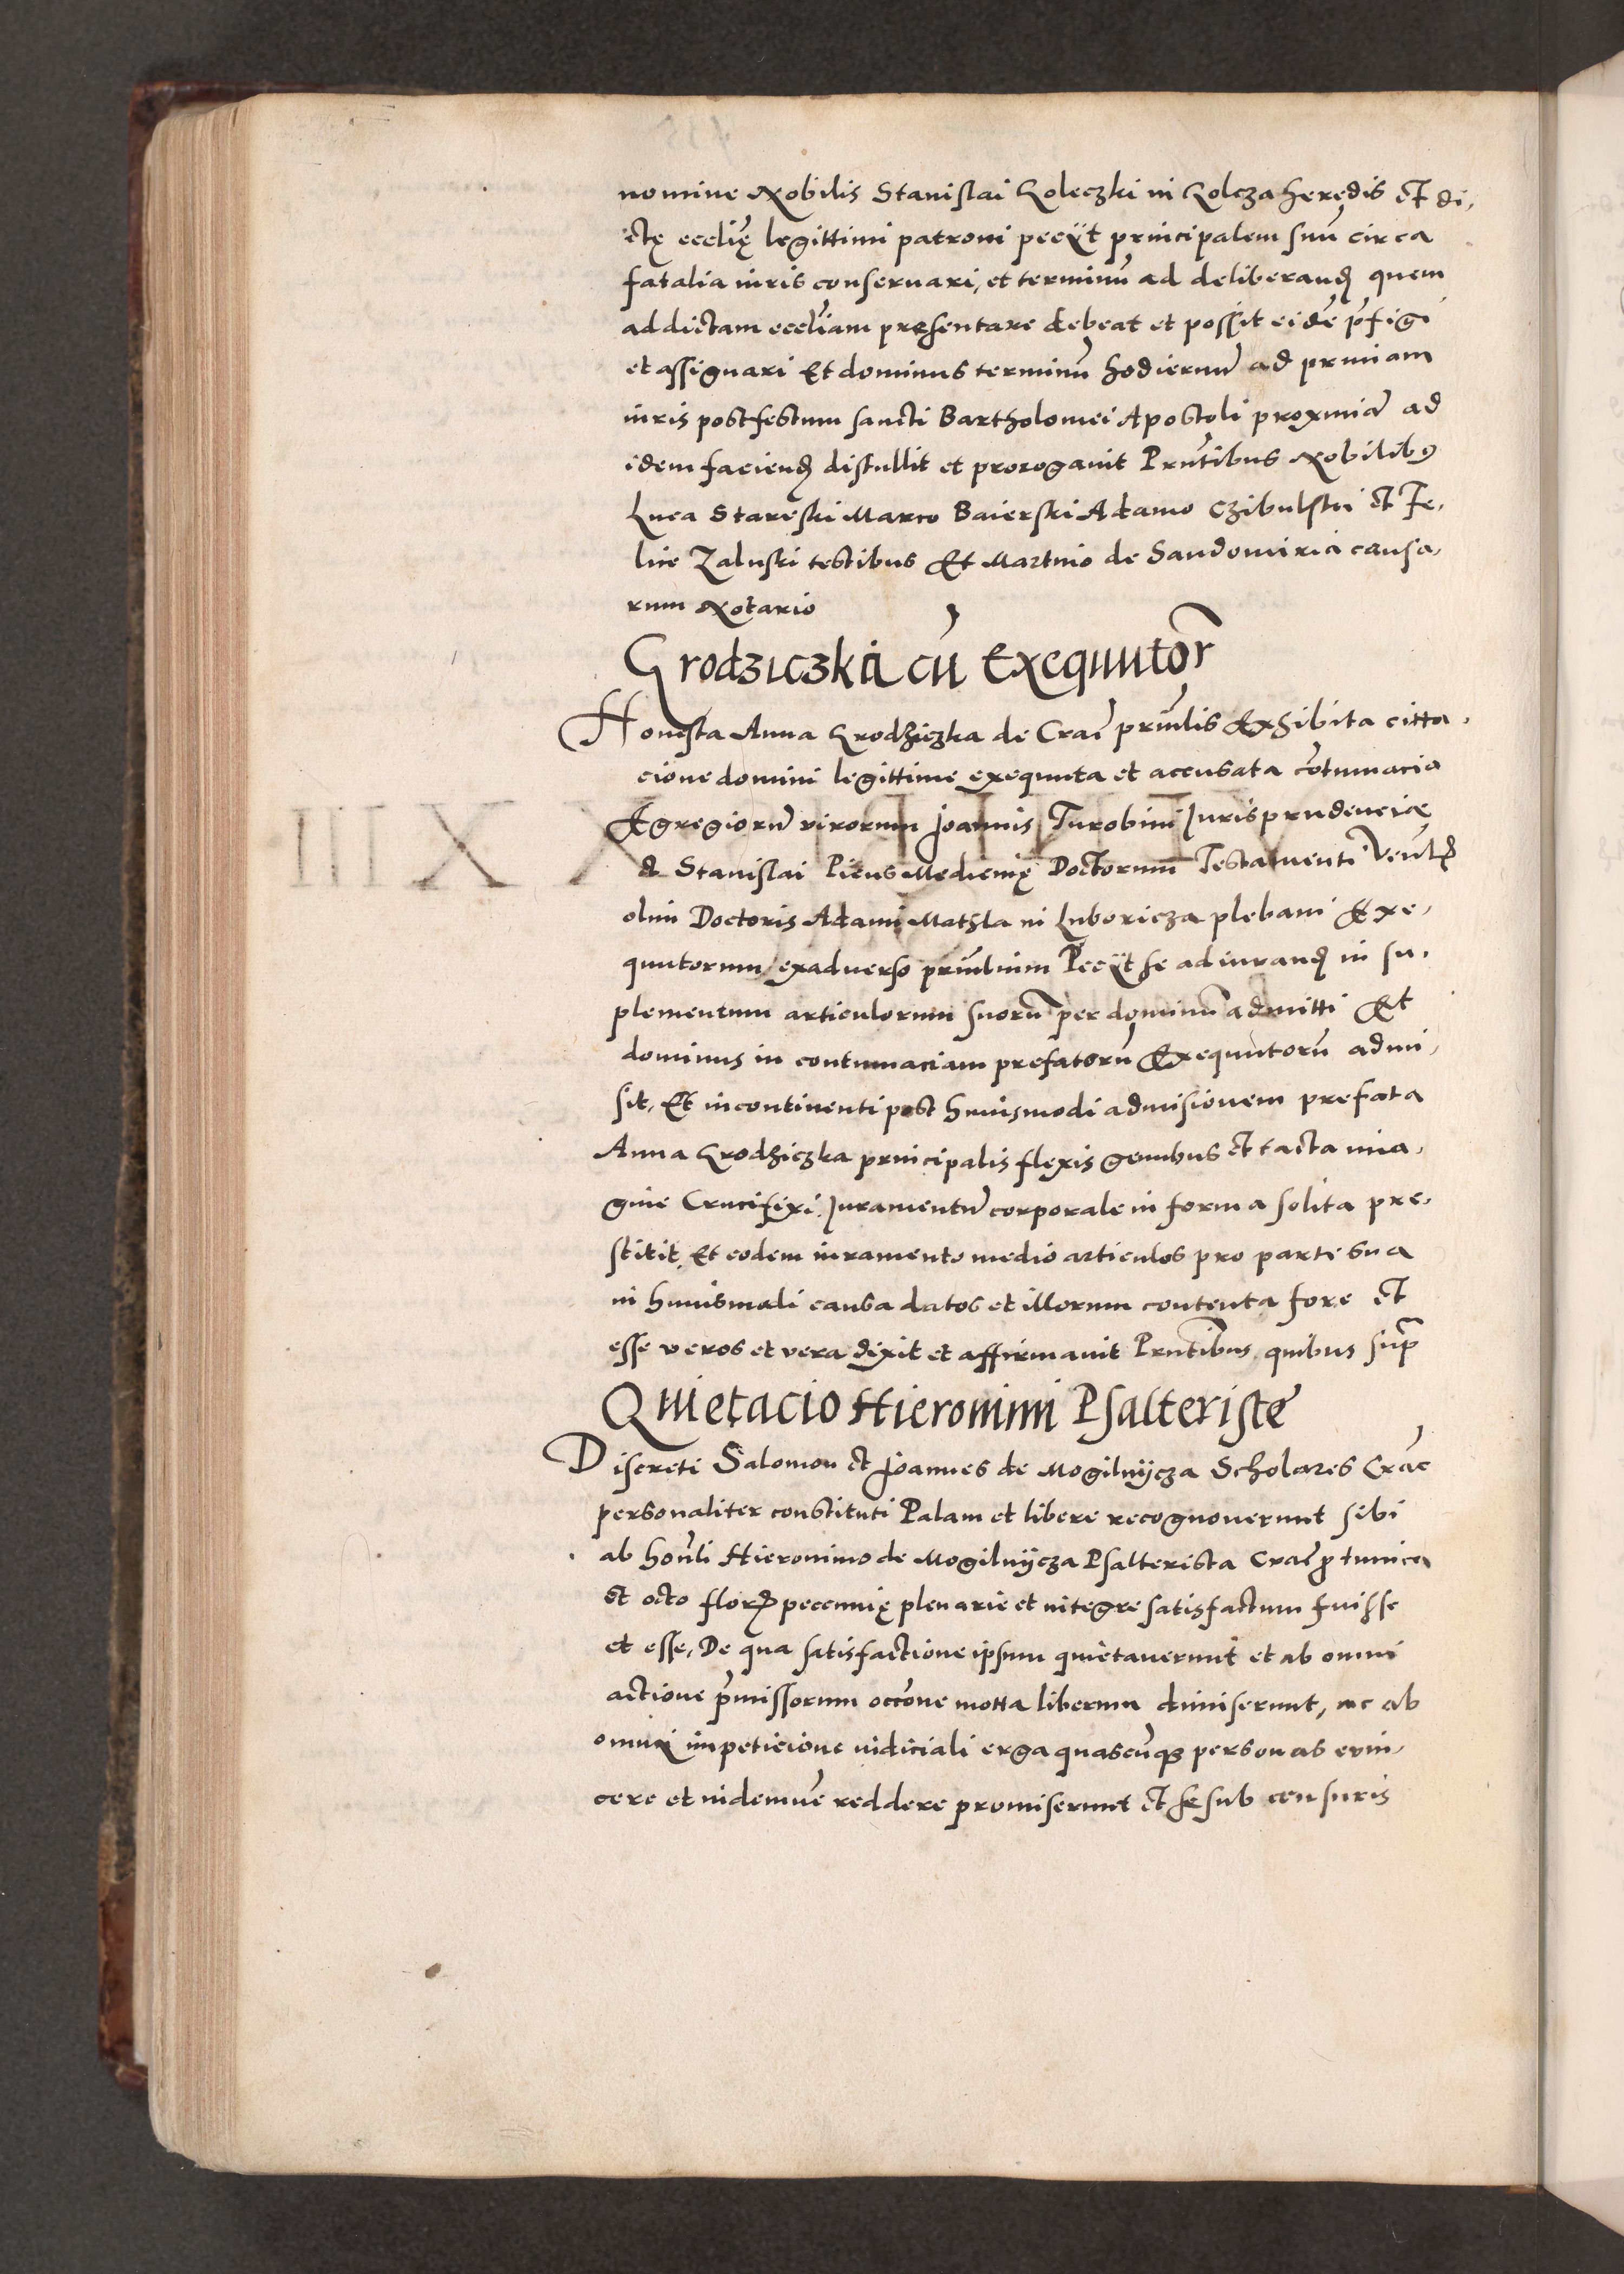 nomine Nobilis Stanislai Goleczki in Golcza heredis et di,
ctę ecclię legittimi patroni peciit principalem suū circa
fatalia iuris conseruari, et terminū ad deliberand quem
ad dictam eccliam presentare debeat et possit eidē pfigi
et assignari Et dominus terminū hodiernū ad primam
iuris post festum sancti Bartholomei Apostoli proximā ad
idem faciend distullit et prorogauit Pntibus Nobilibꝯ
Luca Mareo Baierski Adamo Czibulski et Fe,
lice Zaluski testibus Et Martino de Sandomiria causa,
rum Notario
Grodziczka cū Exequutor
Honesta Anna Grodziczka de Crac prinlis Exhibita citta,
cione domini legittime exequuta et accusata cōtumacia
Egregiorū virorum Joannis Turobini Jurisprudencię
& Stanislai Picus Medicinę Doctorum Testamenti
olim Doctoris Adami in Luboricza plebani Exe,
quutorum ex aduerso prinlium Peciit se ad iurand in su,
plementum articulorum suorū per dominū admitti Et
dominus in contumaciam prefatorū Exequutorū admi,
sit, Et incontinenti post huiusmodi admisionem prefata
Anna Grodziczka principalis flexis genibus et tacta ima,
gine Crucifixi Juramentū corporale in forma solita pre,
stitit, Et eodem iuramento medio articulos pro parte sua
in huiusmodi causa datos et illorum contenta fore et
esse veros et vera dixit et affirmauit Pntibus quibus sup
Quietacio Hieronimi Psalteriste
Discreti Salomon et Joannes de Mogilnijcza Scholares Crac
personaliter constituti Palam et libere recognouerunt sibi
ab honli Hieronimo de Mogilnijcza Psalterista Crac ꝓ tunica
et octo flor peccunię plenarie et integre satisfactum fuisse
et esse, De qua satisfactione ipsum quietauerunt et ab omni
actione pmissorum occōne motta liberum dimiserunt, ac ab
omni impeticione iudiciali erga quascūqꝫ personas euin,
cere et indemnē reddere promiserunt et se sub censuris